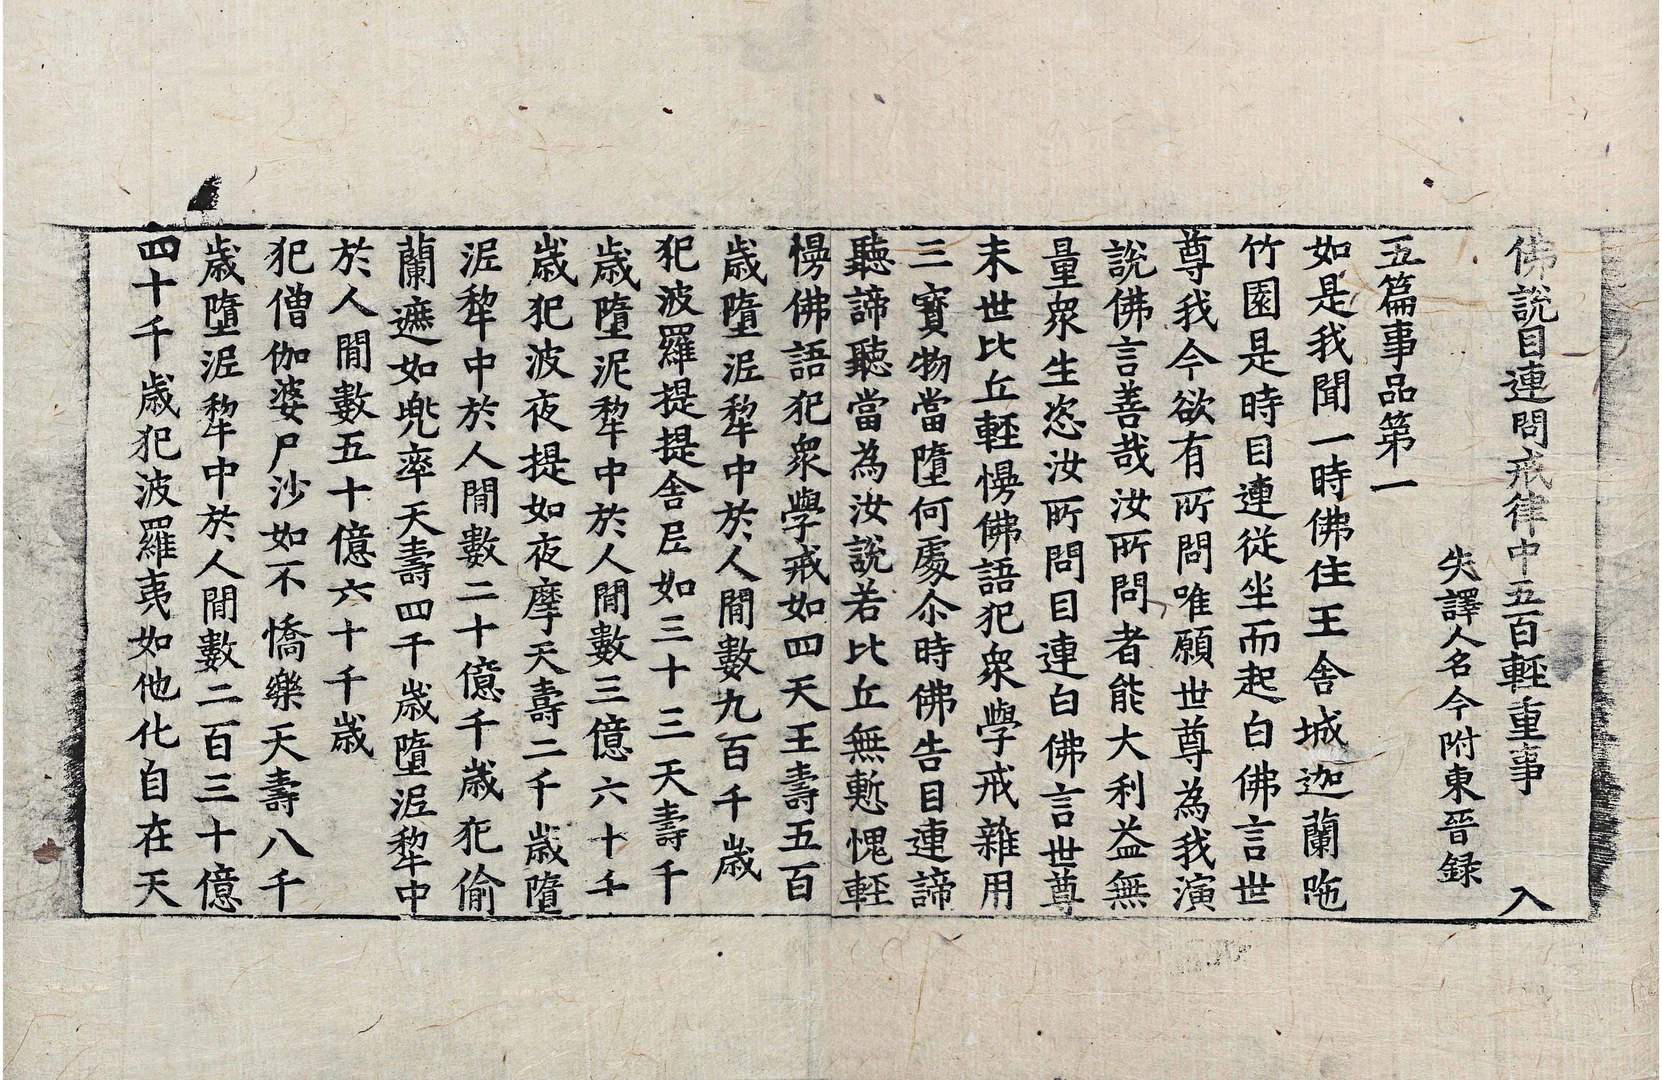 佛說目連問戒律中五百輕重事 入
失譯人名今附東晉録
五篇事品第一
如是我聞一時佛住王舍城迦蘭陁
竹園是時目連從坐而起白佛言世
尊我今欲有所問唯願世尊為我演
說佛言善哉汝所問者能大利益無
量衆生恣汝所問目連白佛言世尊
末世比丘輕慢佛語犯衆學戒雜用
三寶物當墮何處尒時佛告目連諦
聽諦聽當為汝說若比丘無慙愧輕
慢佛語犯衆學戒如四天王壽五百
歲墮泥犂中於人間數九百千歲
犯波羅提提舍尼如三十三天壽千
歲墮泥犂中於人間數三億六十千
歲犯波夜提如夜摩天壽二千歲墮
泥犂中於人間數二十億千歲犯偷
蘭遮如兜率天壽四千歲墮泥犂中
於人間數五十億六十千歲
犯僧伽婆尸沙如不憍樂天壽八千
歲墮泥犂中於人間數二百三十億
四十千歲犯波羅夷如他化自在天